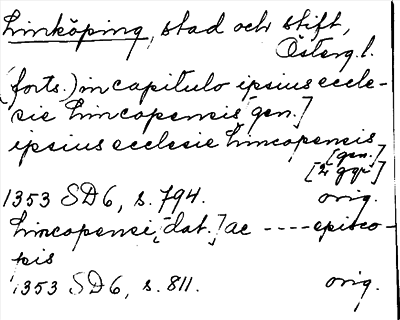 Linköping, stad och stift,
Östergl.
(forts.) in capitulo ipsius eccle-
sie Lincopensis [gen.]
ipsius ecclesie Lincopensis
[gen.]
[2 ggr]
1353 SD6, s. 794. orig.
Lincopensi, [dat.] ac ---- episco-
pis
1353 SD6, s. 811. orig.